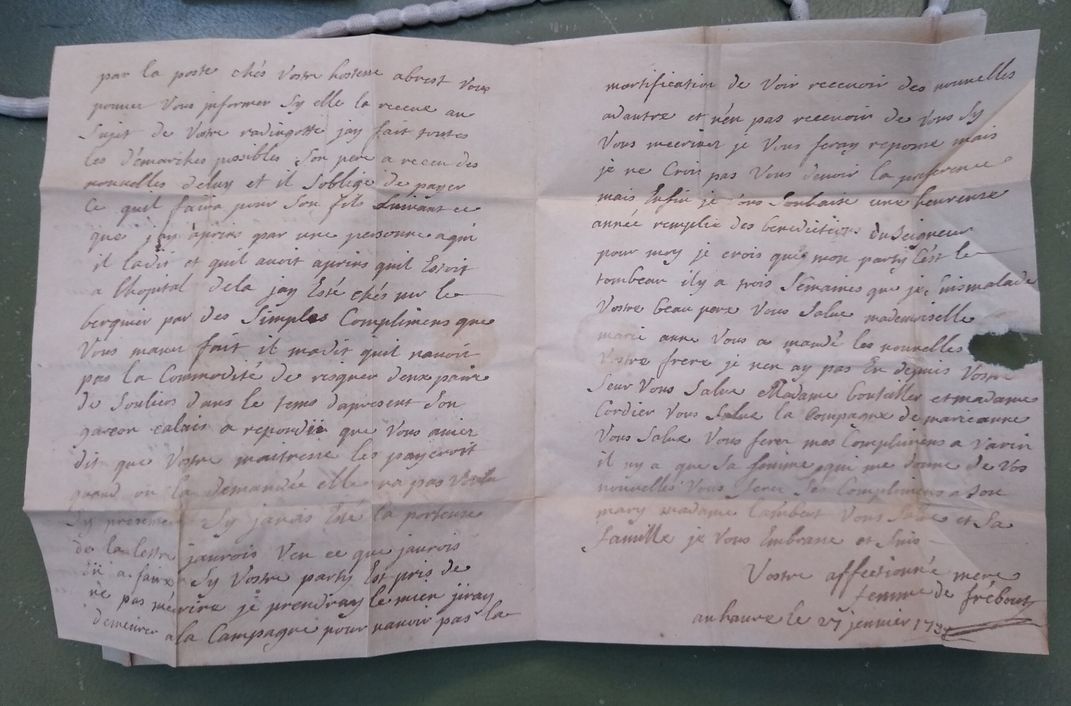 par la poste chés Vostre hostesse abrest vous
pouvez Vous informer Sy elle la receue au
Sujet de Vostre radingotte jay fait toutes
les démarches possibles Son pere a receu des
nouvelles deluy et il Soblige de payer
Ce quil faira pour Son fils Suivant ce
que jay apris par une personne aqui
il ladit et quil avoit apris quil Estoit
a lhopital dela jay Esté chés mr le
berquier par des Simples Complimens que
Vous maviez fait il madit quil navoit
pas la Commodité de risquer deux paire
de Souliers dans le tems dapresent Son
garçon calais a repondu que Vous aviez
dit que Vostre maitresse les payeroit
quand on la demandée elle na pas Voulu
Sy presenter Sy javois Esté la porteuse
de la lettre jaurois Veu ce que jaurois
eü a faire Sy Vostre party Est pris de
ne pas mécrire je prendray le mien jiray
demeurer ala Campagne pour navoir pas la
mortification de Voir recevoir des nouvelles
adautre et nen pas recevoir de Vous Sy
Vous mecrivez je Vous feray reponse mais
je ne Crois pas Vous devoir la preference
mais Enfin je Vous Souhaise une heureuse
année remplie des benedictions du Seigneur
pour moy je crois que mon party Est le
tombeau il y a trois Semaines que je suis malade
Vostre beau pere Vous Salue mademoiselle
marie anne Vous a mandé les nouvelles
Vostre frere je nen ay pas Eu depuis Vostre
Seur Vous Salue Madame bouteiller et madame
Cordier Vous Salue la Compagne de marie anne
Vous Salue Vous ferez mes Complimens a Varin
il ny a que Sa femme qui me donne de Vos
nouvelles Vous ferez Ses Complimens a Son
mary madame Lambert Vous Salue et Sa
famille je Vous Embrasse et Suis
Vostre affectionnée mere
femme de frébourg
au havre le 27 jenvier